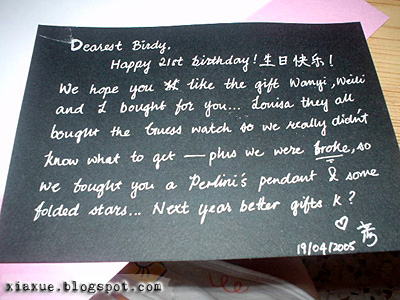 Dearest Birdy,
Happy 21st birthday! 生日快乐!
We hope you like the gift Wanyi, Weili
and I bought for you... Louisa they all
bought the Guess watch so we really didn't
know what to get — plus we were broke, so
we bought you a Perlini's pendant & some
folded stars... Next year better gifts k?
19/04/2005
xiaxue.blogspot.com